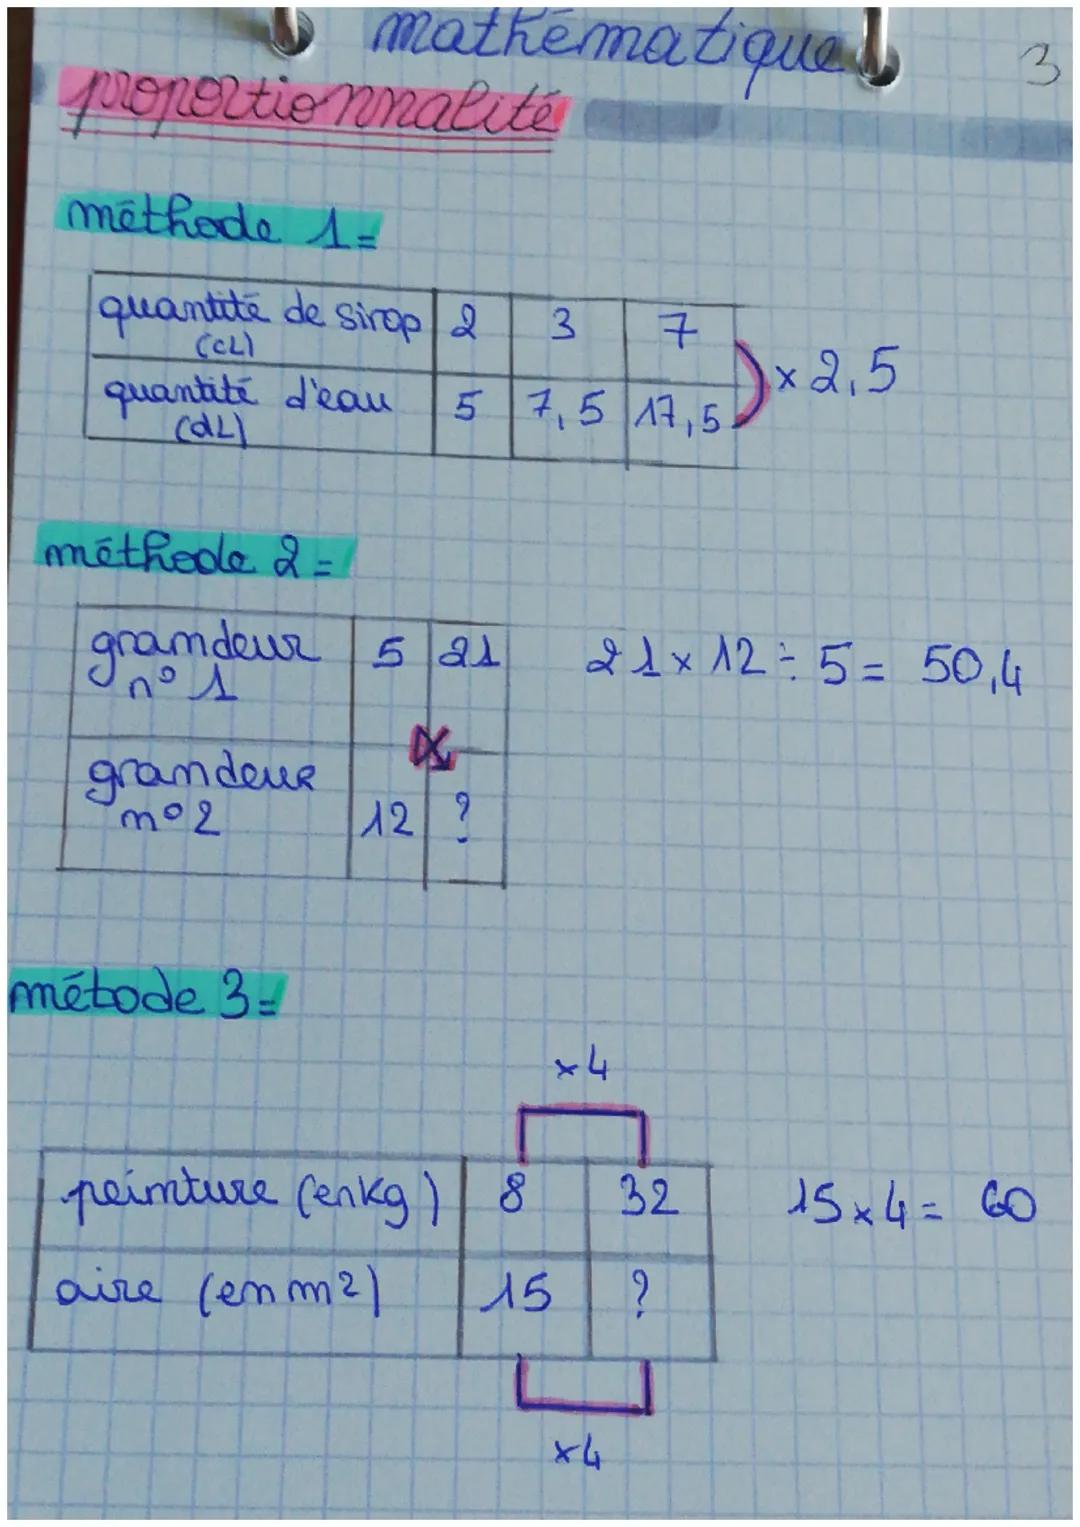 mathématique
3
proportionnalité
méthode 1=
quantité de sirop 2 3 7
(cL)
× 2,5
quantité d'eau 5 7,5 17,5
(dL)
méthode 2=
grandeur 5 21 21 × 12 ÷ 5 = 50,4
n° 1
grandeur
n° 2 12 ?
métode 3=
×4
peinture (en kg) 8 32 15 × 4 = 60
aire (en m²) 15 ?
×4